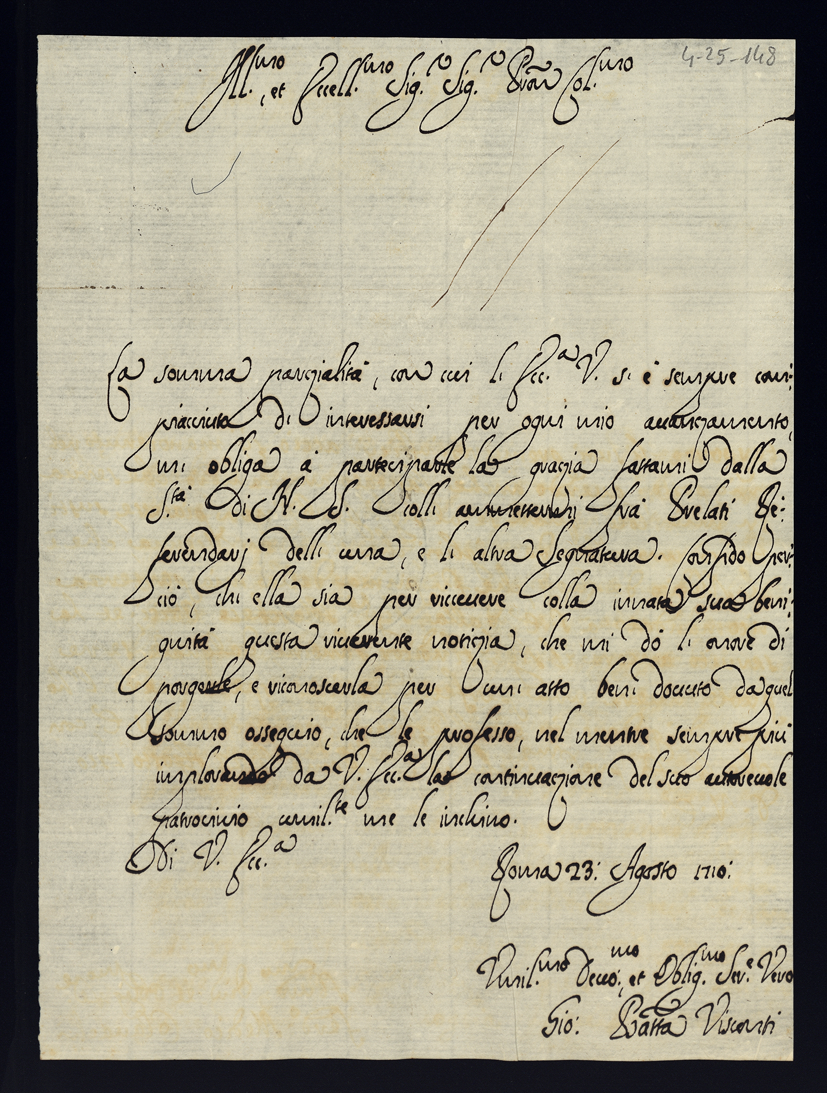 4-25-148
Ill.mo, et Eccell.mo Sig.r Sig.r Pron Col.mo
La somma parzialità, con cui l' Ecc.a V. si è sempre com:
piacciuta di interessarsi per ogni mio avanzamento,
mi obliga à partecipante la grazia fattami dalla
S.tà di N. S. coll' ammettermi frà Prelati Re:
ferendarj dell' una, e l' altra Segnatura. Confido per:
ciò, ch' ella sia per ricevere colla innata sua beni:
gnità questa riverente notizia, che mi dò l' onore di
porgerle, e riconoscerla per un' atto ben' dovuto da quel
sommo ossequio, che le professo, nel mentre sempre più
implorando da V. Ecc.a la continuazione del suo autorevole
patrocinio umil.te me le inchino.
Di V. Ecc.a
Roma 23: Agosto 1710:
Umil.mo Devo:mo, et Oblig.mo Ser.e Vero
Gio: Batta Visconti